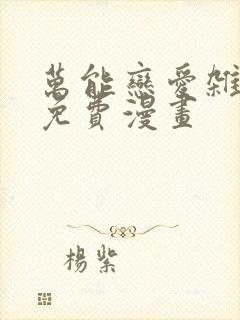 萬能戀愛雜
免費漫畫
楊紫